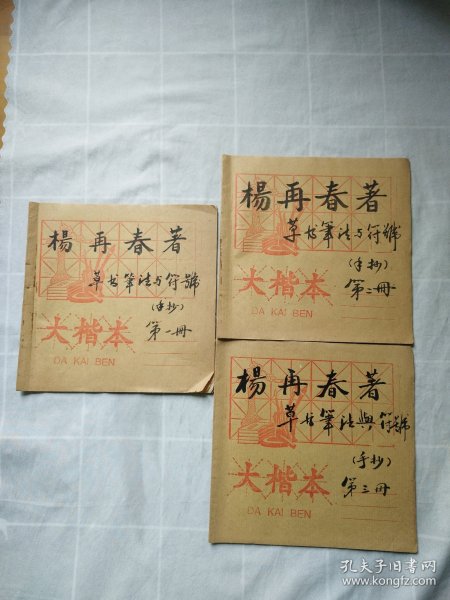 楊再春著
草书筆法与符號
(手抄)
第一冊
大楷本
DA KAI BEN
楊再春著
草书筆法与符號
(手抄)
第二冊
大楷本
DA KAI BEN
楊再春著
草书筆法與符號
(手抄)
第三冊
大楷本
DA KAI BEN
孔夫子旧书网
www.kongfz.com